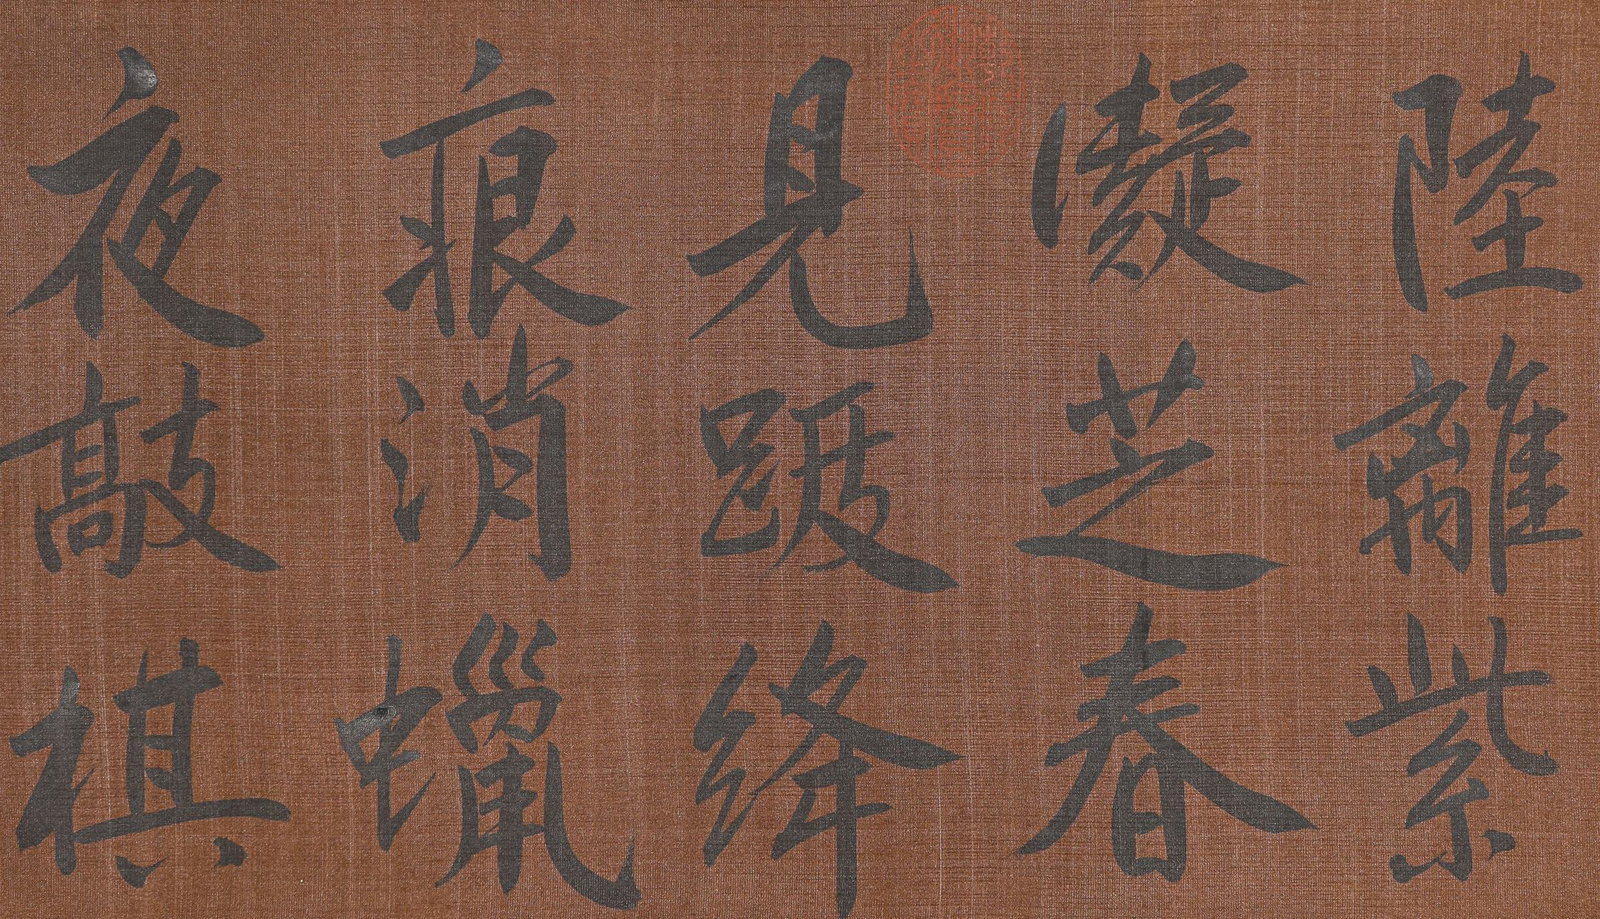 陸離紫
凝芝春
見跋絳
痕消蠟
夜敲棋